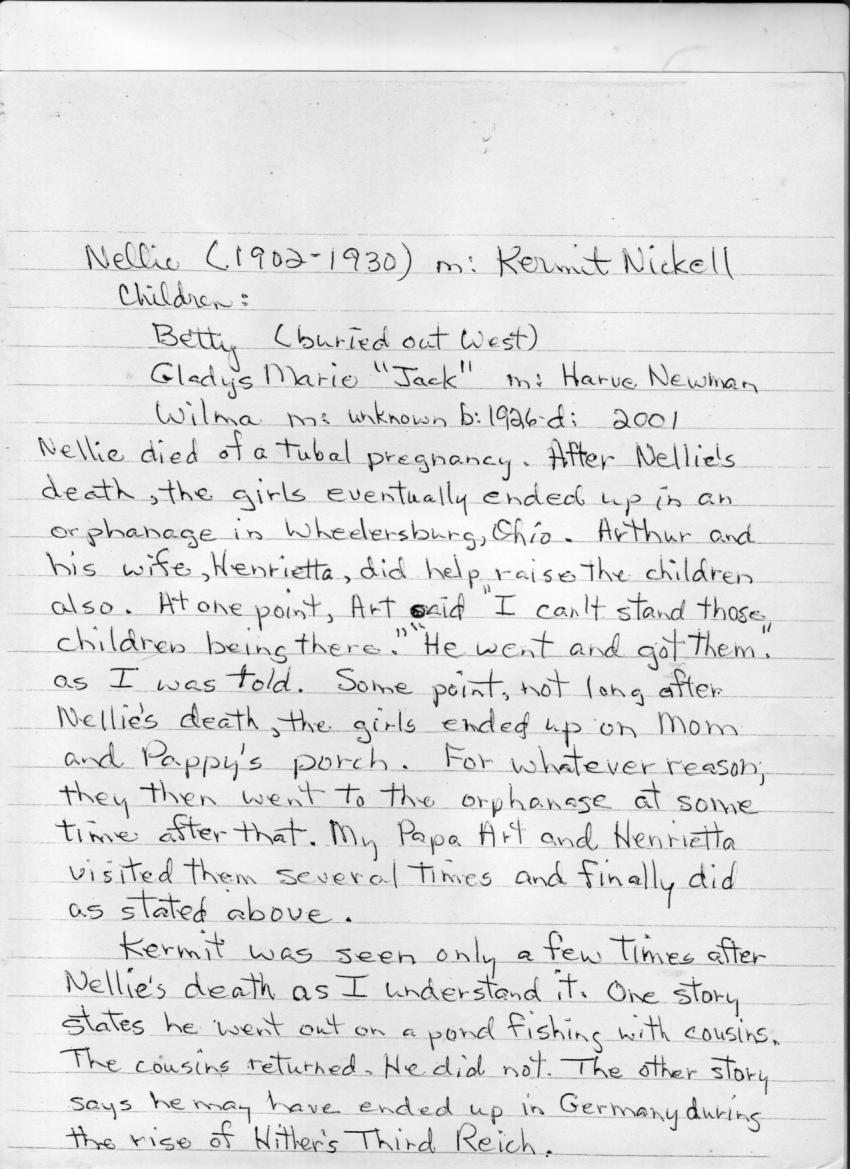 Nellie (1902-1930) m: Kermit Nickell
Children:
Betty (buried out West)
Gladys Marie "Jack" m: Harve Newman
Wilma m: unknown b: 1926 d: 2001
Nellie died of a tubal pregnancy. After Nellie's
death, the girls eventually ended up in an
orphanage in Wheelersburg, Ohio. Arthur and
his wife, Henrietta, did help raise the children
also. At one point, Art said "I can't stand those
children being there." "He went and got them."
as I was told. Some point, not long after
Nellie's death, the girls ended up on Mom
and Pappy's porch. For whatever reason,
they then went to the orphanage at some
time after that. My Papa Art and Henrietta
visited them several times and finally did
as stated above.
Kermit was seen only a few times after
Nellie's death as I understand it. One story
states he went out on a pond fishing with cousins.
The cousins returned. He did not. The other story
says he may have ended up in Germany during
the rise of Hitler's Third Reich.